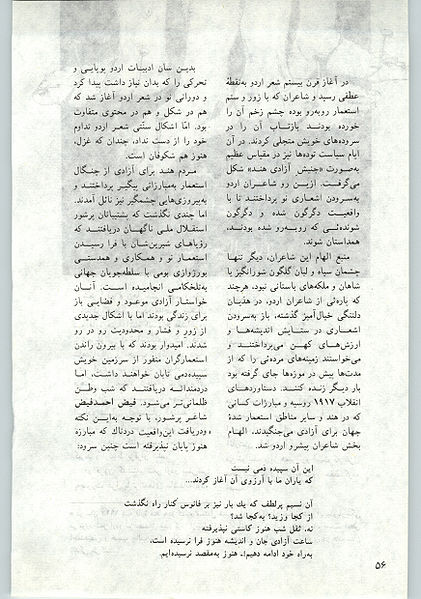 در آغاز قرن بیستم شعر اردو به‌نقطهٔ
عطفی رسید و شاعران که با زور و ستم
استعمار روبه‌رو بوده چشم زخم آن را
خورده بودند بازتاب آن را در
سروده‌های خویش متجلی کردند. در آن
ایام سیاست توده‌ها نیز در مقیاس عظیم
به‌صورت «جنبش آزادی هند» شکل
می‌گرفت. ازین رو شاعران اردو
به‌سرودن اشعاری نو پرداختند تا با
واقعیت دگرگون شده و دگرگون
شونده‌ئی که روبه‌رو شده بودند،
همداستان شوند.
منبع الهام این شاعران، دیگر تنها
چشمان سیاه و لبان گلگون شورانگیز یا
شاهان و ملکه‌های باستانی نبود، هرچند
که پاره‌ئی از شاعران اردو، در هذیان
دلتنگی خیال‌آمیز گذشته، باز به‌سرودن
اشعاری در ستایش اندیشه‌ها و
ارزش‌های کهن می‌پرداختند و
می‌خواستند زمینه‌های مرده‌ئی را که از
مدت‌ها پیش در موزه‌ها جای گرفته بود
بار دیگر زنده کنند. دستاوردهای
انقلاب ۱۹۱۷ روسیه و مبارزات کسانی
که در هند و سایر مناطق استعمار شدهٔ
جهان برای آزادی می‌جنگیدند، الهام
بخش شاعران پیشرو اردو شد.
بدین سان ادبیات اردو پویایی و
تحرکی را که بدان نیاز داشت پیدا کرد
و دورانی نو در شعر اردو آغاز شد که
هم در شکل و هم در محتوی متفاوت
بود. امّا اشکال سنّتی شعر اردو تداوم
خود را از دست نداد، چندان که غزل،
هنوز هم شکوفان است.
مردم هند برای آزادی از چنگال
استعمار به‌مبارزاتی پیگیر پرداختند و
به‌پیروزی‌هایی چشمگیر نیز نائل آمدند.
اما چندی نگذشت که پشتیبانان پرشور
استقلال ملی ناگهان دریافتند که
رؤیاهای شیرین‌شان با فرا رسیدن
استعمار نو و همکاری و همدستی
بورژوازی بومی با سلطه‌جویان جهانی
به‌تلخکامی انجامیده است. آنان
خواستار آزادی موعود و فضایی باز
برای زندگی بودند اما با اشکال جدیدی
از زور و فشار و محدودیت رو در رو
شدند. امیدوار بودند که با بیرون راندن
استعمارگران منفور از سرزمین خویش
سپیده‌دمی تابان خواهند داشت، اما
دردمندانه دریافتند که شب وطن
ظلمانی‌تر می‌شود. فیض احمدفیض
شاعر پرشور، با توجه به‌این نکته
ودریافت این‌واقعیت دردناك که مبارزه
هنوز پایان نپذیرفته است چنین سرود:
این آن سپیده دمی نیست
که یاران ما با آرزوی آن آغاز کردند...
آن نسیم پرلطف که یك بار نیز بر فانوس کنار راه نگذشت
از کجا وزید؟ به‌کجا شد؟
نه. ثقل شب هنوز کاستی نپذیرفته
ساعت آزادی جان و اندیشه هنوز فرا نرسیده است.
به‌راه خود ادامه دهیم!، هنوز به‌مقصد نرسیده‌ایم.
۵۶